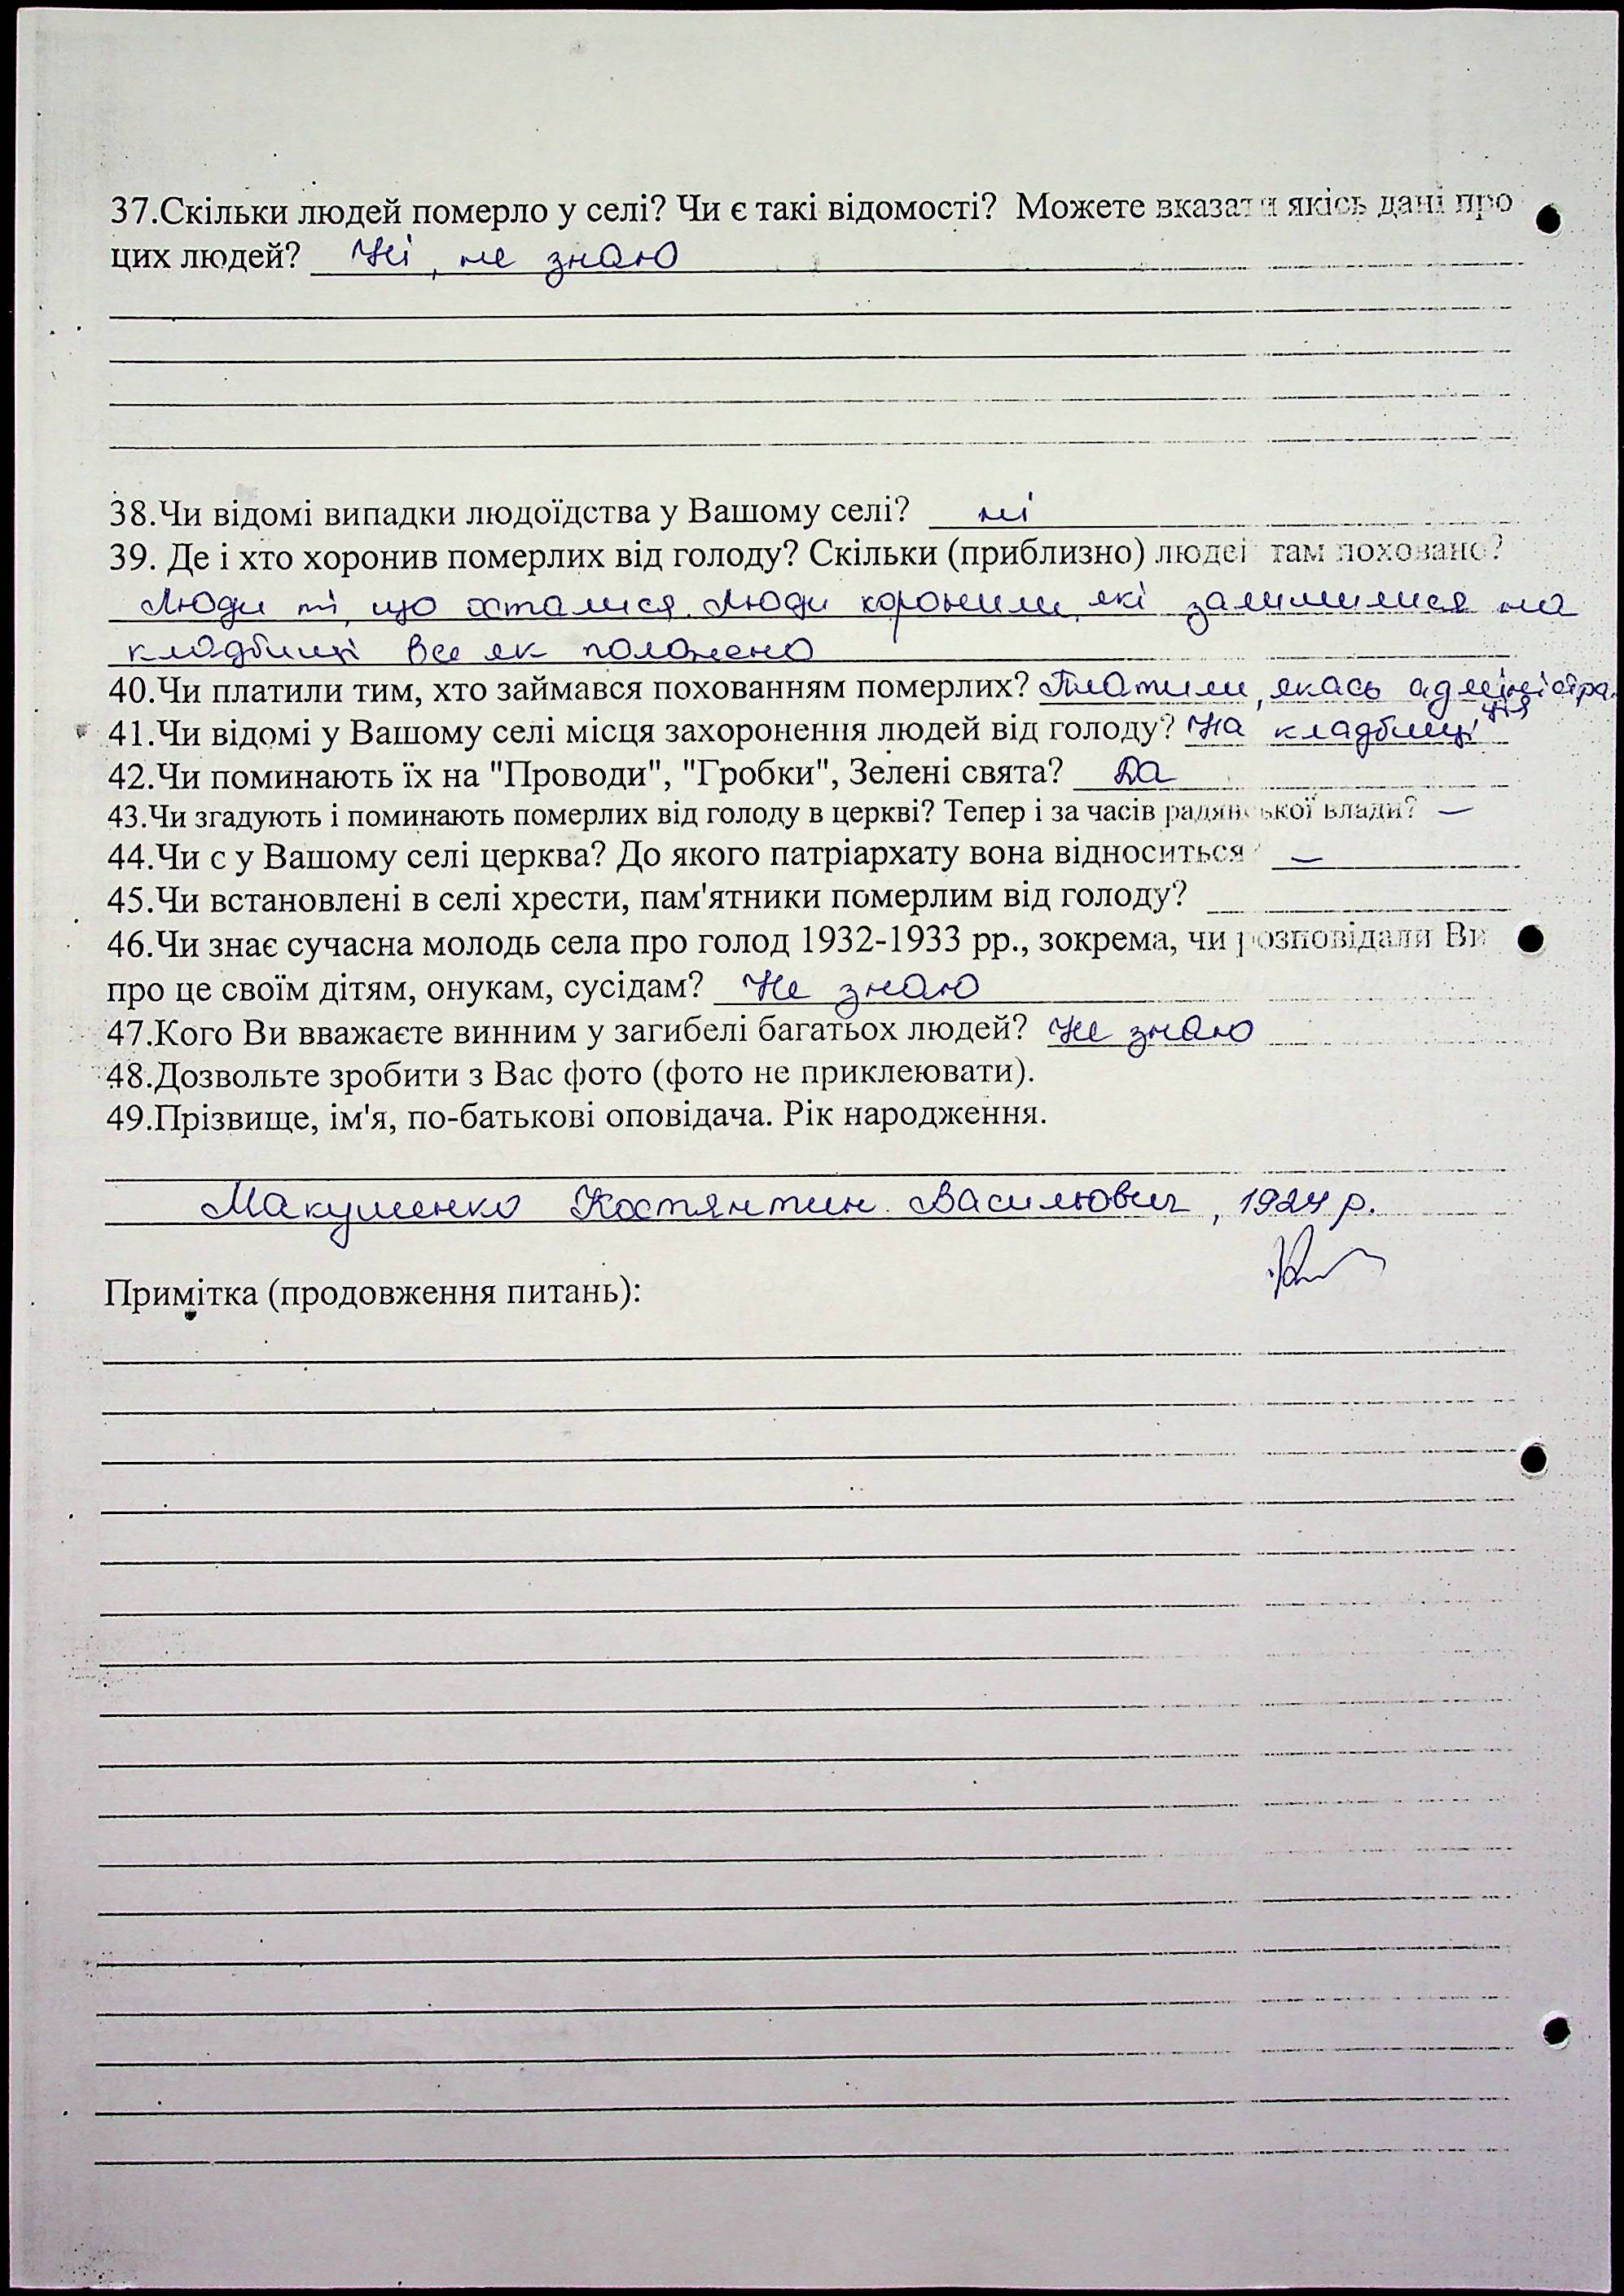 37.Скільки людей померло у селі? Чи є такі відомості? Можете вказати якісь дані про
цих людей? Ні, не знаю
38.Чи відомі випадки людоїдства у Вашому селі? ні
39. Де і хто хоронив померлих від голоду? Скільки (приблизно) людей там поховано?
Люди ті, що осталися. Люди хоронили, які залишилися на
кладбищі все як положено
40.Чи платили тим, хто займався похованням померлих? Платили, якась адміністра
ція
41.Чи відомі у Вашому селі місця захоронення людей від голоду? На кладбищі
42.Чи поминають їх на "Проводи", "Гробки", Зелені свята? Да
43.Чи згадують і поминають померлих від голоду в церкві? Тепер і за часів радянської влади? —
44.Чи є у Вашому селі церква? До якого патріархату вона відноситься? —
45.Чи встановлені в селі хрести, пам'ятники померлим від голоду?
46.Чи знає сучасна молодь села про голод 1932-1933 рр., зокрема, чи розповідали Ви
про це своїм дітям, онукам, сусідам? Не знаю
47.Кого Ви вважаєте винним у загибелі багатьох людей? Не знаю
48.Дозвольте зробити з Вас фото (фото не приклеювати).
49.Прізвище, ім'я, по-батькові оповідача. Рік народження.
Макушенко Костянтин Васильович, 1924 р.
Примітка (продовження питань):